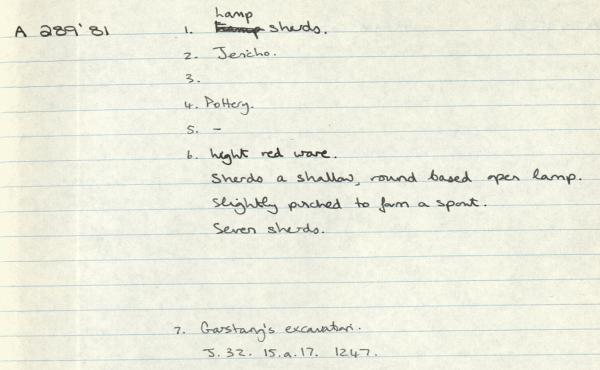 A 289'81
Lamp
1. sherds.
2. Jericho.
3.
4. Pottery.
5. -
6. Light red ware.
Sherds a shallow, round based open lamp.
Slightly pinched to form a spout.
Seven sherds.
7. Garstang's excavation.
J. 32. 15.a.17. 1247.